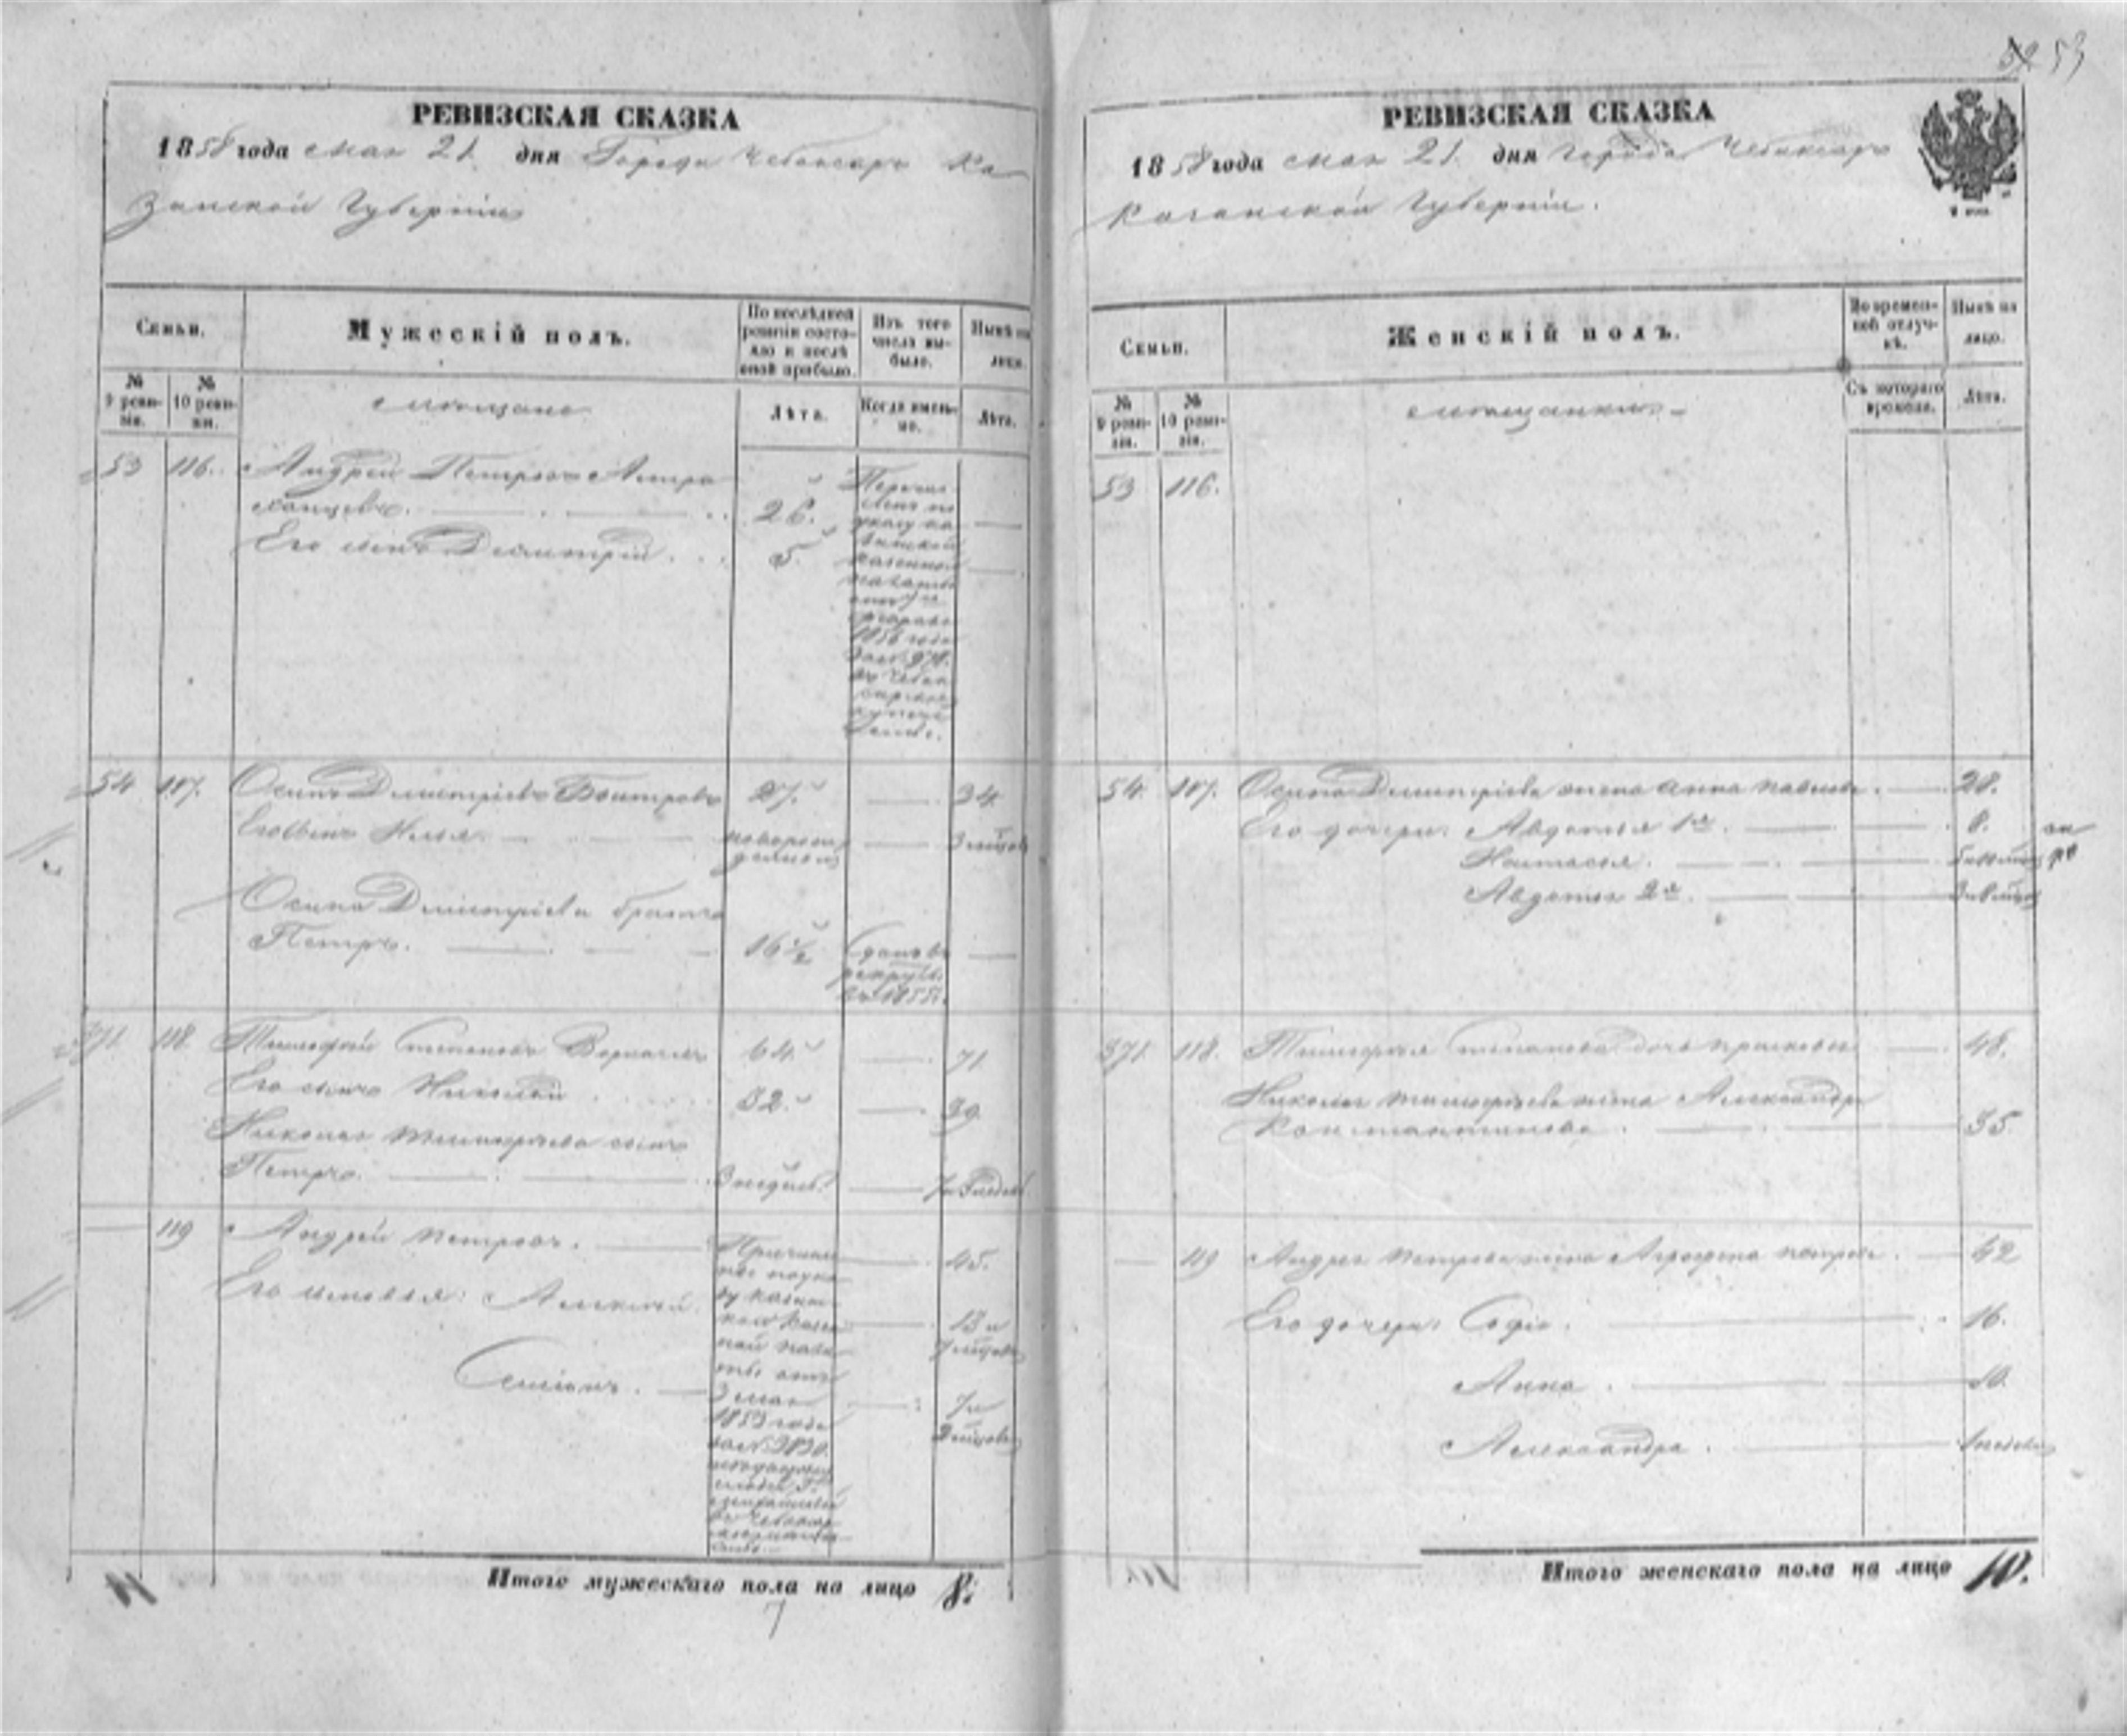 53
РЕВИЗСКАЯ СКАЗКА
1858 года мая 21. дня Города Чебоксаръ Ка
занской Губерніи
Семьи.
Мужескій полъ.
По послѣдней ревизіи состояло и послѣ оной прибыло.
Изъ того числа выбыло.
Нынѣ на лицо.
№ 9 ревизіи.
№ 10 ревизіи.
мещане
Лѣта.
Когда именно.
Лѣта.
53 116. Андрей Петровъ Астра
ханцевъ. 26.
Его сынъ Димитрій. 5.
Перечис
ленъ по
указу ка
занской
казенной
палаты
отъ
февраля
1856 года
за №
въ Чебок
сарское
купече
ство.
54 117. Осипъ Димитріевъ 27. 34.
Его сынъ Илья. новорож
денной 3 мѣсяц
Осипа Димитріева братъ
Петръ. 16½ Сданъ въ
рекруты
въ 1855 г.
371. 118. Тимофей Степановъ 64. 71
Его сынъ Николай 32. 39
Николая Тимофѣева сынъ
Петръ. 3 недѣль.
119 Андрей Петровъ. 45.
Его сыновья: Алексѣй. 13 и
7 мѣсяцовъ
Семіонъ. 7 и
Причис
ленъ по ука
зу казан
ской Казен
ной пала
ты отъ
3 мая
1853 года
Итого мужескаго пола на лицо 8.
7
РЕВИЗСКАЯ СКАЗКА
1858 года мая 21. дня Города Чебоксаръ
Казанской Губерніи.
Семьи.
Женскій полъ.
Во временной отлучкѣ.
Нынѣ на лицо.
№ 9 ревизіи.
№ 10 ревизіи.
мещанки
Съ котораго времени.
Лѣта.
53 116.
54. 117. Осипа Димитріева жена Анна Павлова. 28.
Его дочери: Авдотья 1я. 8.
Настасья.
Авдотья 2я.
371. 118. Тимофея Степанова дочь Прасковья 48.
Николая Тимофѣева жена Александра
Константинова. 35
119 Андрея Петрова жена Аграфена Петрова. 42
Его дочери: Софія. 16.
Анна. 10.
Александра. недели
Итого женскаго пола на лицо 10.